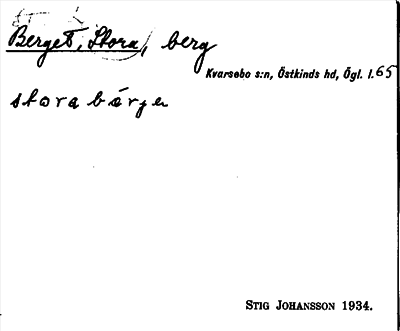 Berget, Stora, berg
Kvarsebo s:n, Östkinds hd, Ögl. l. 65
stora bärjet
STIG JOHANSSON 1934.